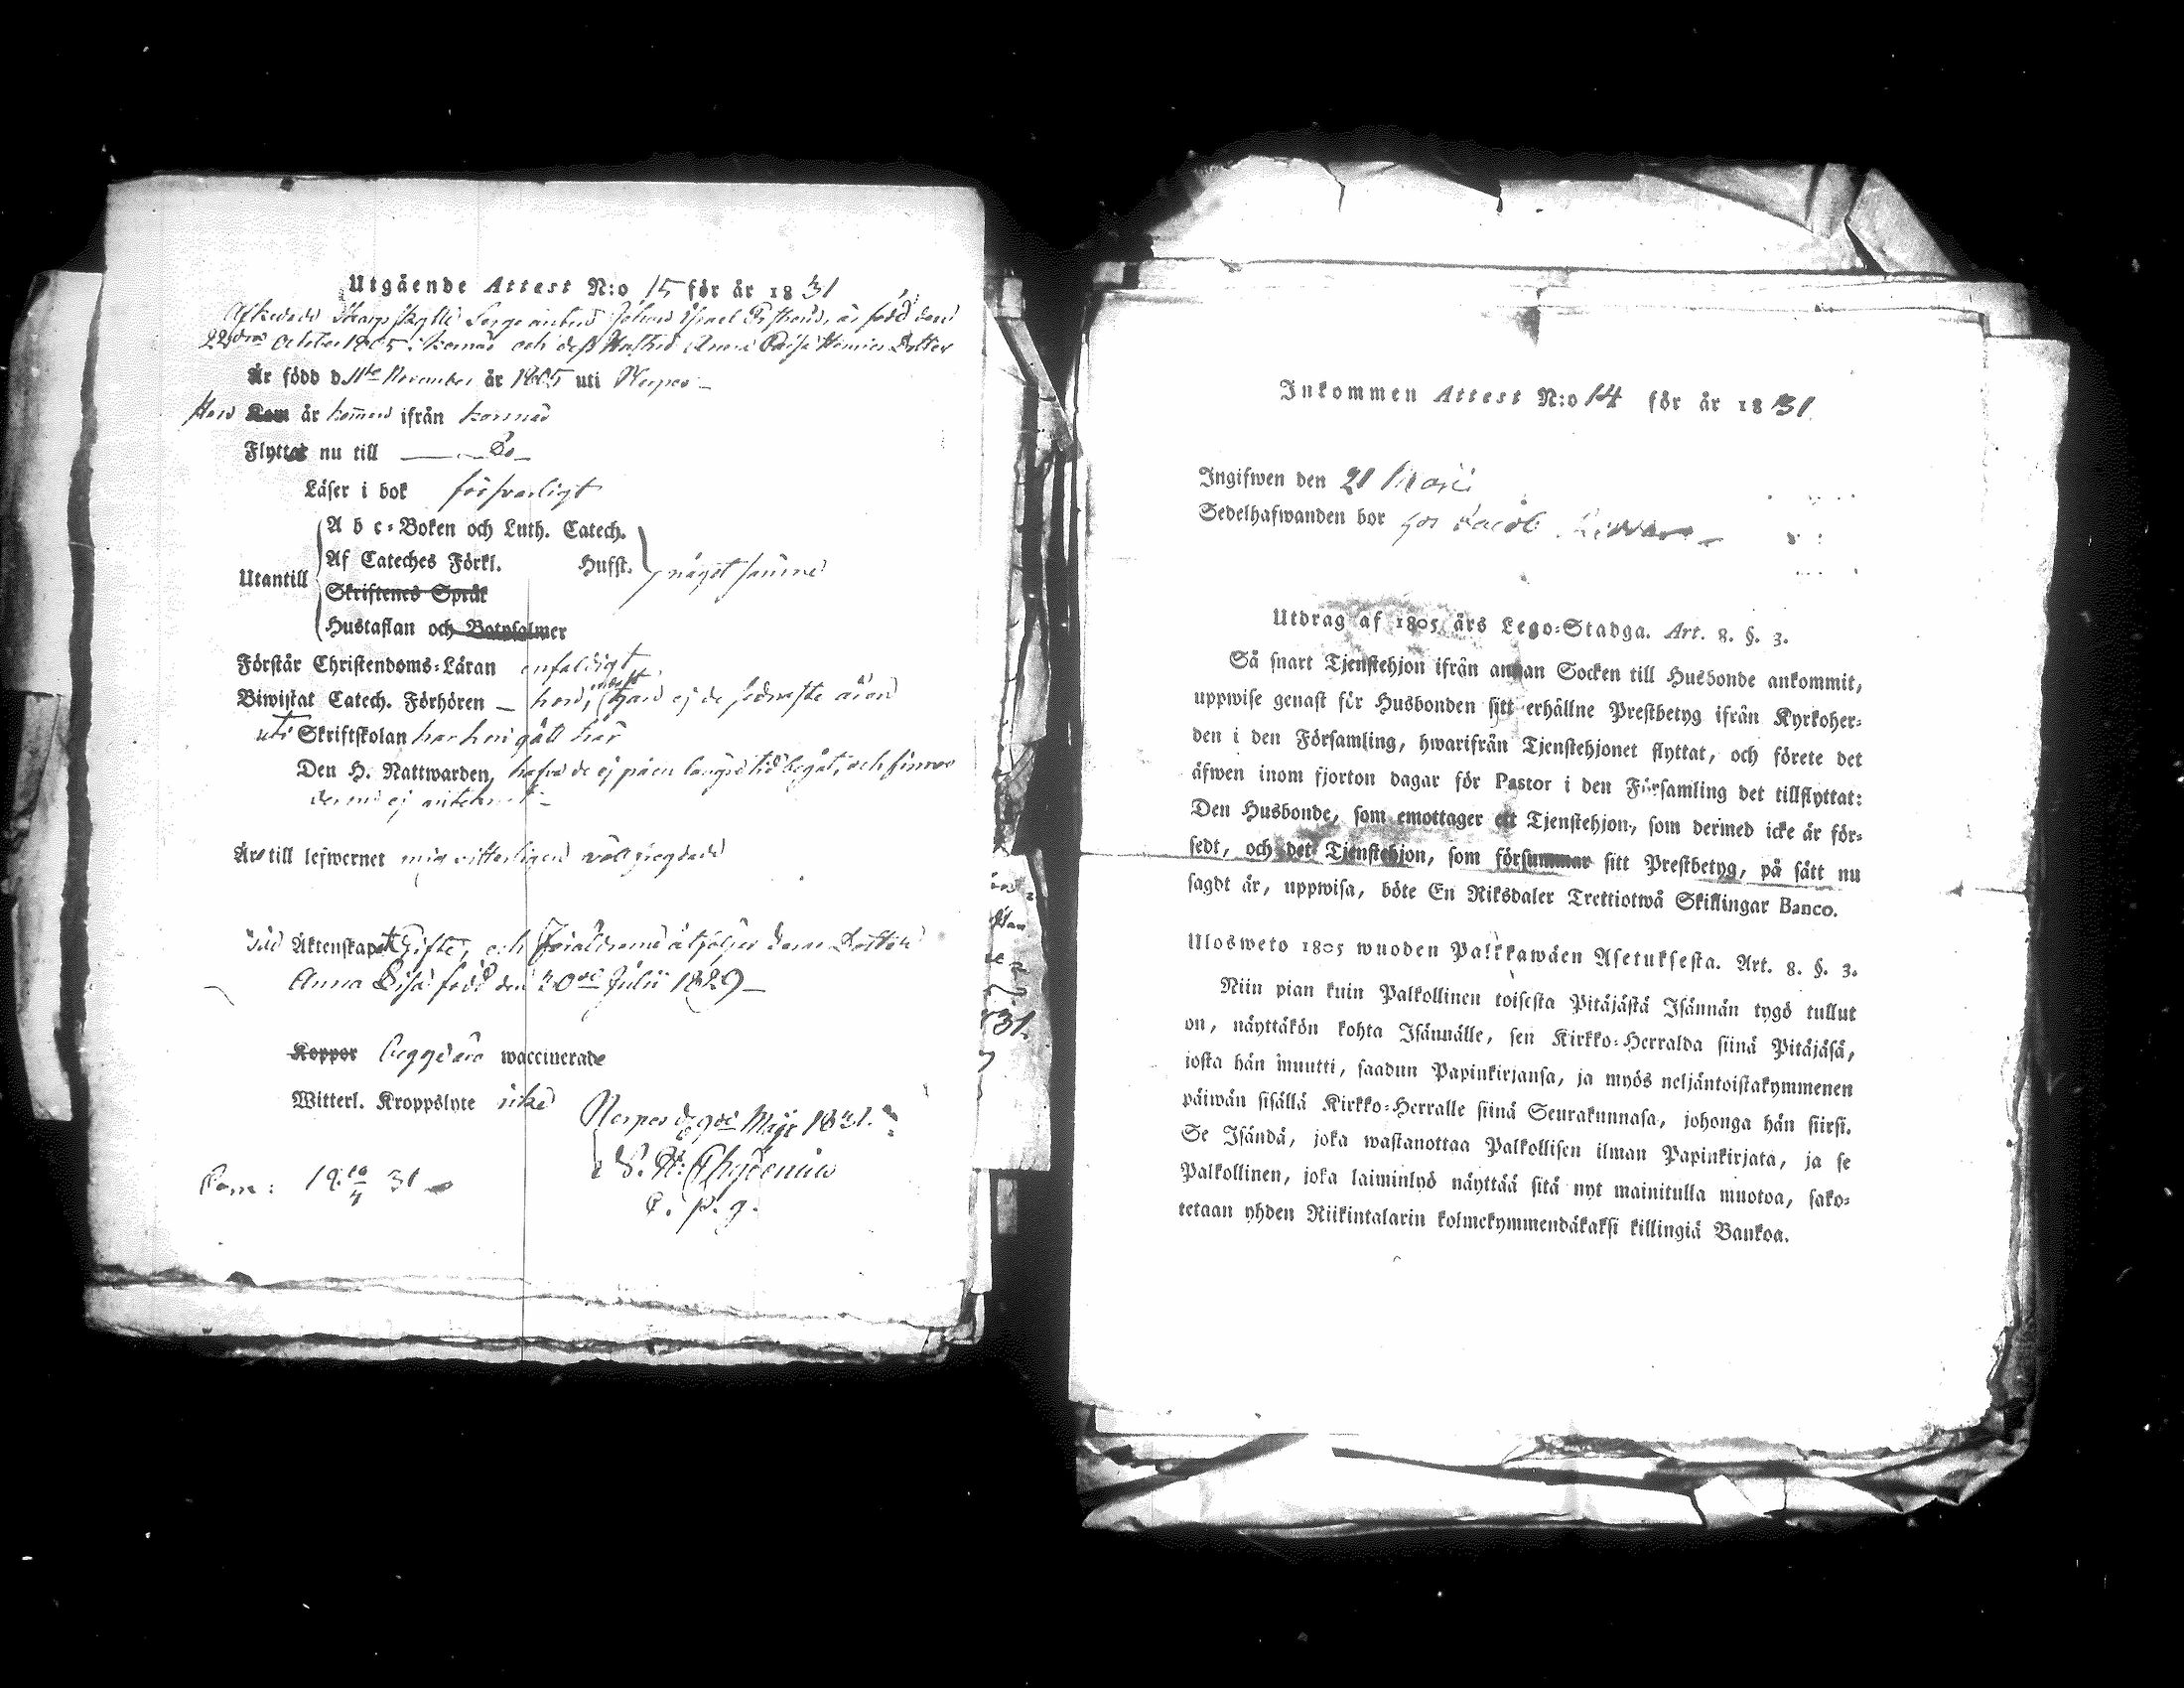 Utgående Attest N:o 15 för år 1831
Afskedade Sergeanten Johan Israel är född den
22dra October 1805 i Korsnäs och dess Hustru Anna Henrics Dotter
Är född d. 11te November år 1805 uti Nerpes
Hon är kommen ifrån Korsnäs
Flytta nu till — Do —
Läser i bok försvarligt
Utantill
A b c-Boken och Luth. Catech.
Af Cateches Förkl. Hufst. något sämre
Skriftenes Språk
Hustaflan och Botpsalmer
Förstår Christendoms-Läran enfaldigt
Biwistat Catech. Förhören — hon, han ej de sednaste åren
uti Skriftskolan har hon gått här
Den H. Nattwarden, hafva de ej på en längre tid begåt, och finnes
ej antecknat —
Äro till lefwernet mig vitterligen
Till Äktenskapet Gifte, och Föräldrarne åtföljer deras Dotter
Anna Lisa född den 20de Julii 1829 —
Koppor begge äro waccinerade
Witterl. Kroppslyte icke
Nerpes d. 9de Maji 1831.
C. p. g.
31
Inkommen Attest N:o 14 för år 1831.
Ingifwen den 21
Sedelhafwanden bor hos Jacob
Utdrag af 1805 års Lego-Stadga. Art. 8. §. 3.
Så snart Tjenstehjon ifrån annan Socken till Husbonde ankommit,
uppwise genast för Husbonden sitt erhållne Prestbetyg ifrån Kyrkoher-
den i den Församling, hwarifrån Tjenstehjonet flyttat, och förete det
äfwen inom fjorton dagar för Pastor i den Församling det tillflyttat:
Den Husbonde, som emottager ett Tjenstehjon, som dermed icke är för-
sedt, och det Tjenstehjon, som försummar sitt Prestbetyg, på sätt nu
sagdt är, uppwisa, böte En Riksdaler Trettiotwå Skillingar Banco.
Ulosweto 1805 wuoden Palkkawäen Asetuksesta. Art. 8. §. 3.
Niin pian kuin Palkollinen toisesta Pitäjästä Isännän tygö tullut
on, näyttäkön kohta Isännälle, sen Kirkko-Herralda siinä Pitäjäsä,
josta hän muutti, saadun Papinkirjansa, ja myös neljäntoistakymmenen
päiwän sisällä Kirkko-Herralle siinä Seurakunnasa, johonga hän siirsi.
Se Isändä, joka wastanottaa Palkollisen ilman Papinkirjata, ja se
Palkollinen, joka laiminlyö näyttää sitä nyt mainitulla muotoa, sako-
tetaan yhden Riikintalarin kolmekymmendäkaksi killingiä Bankoa.